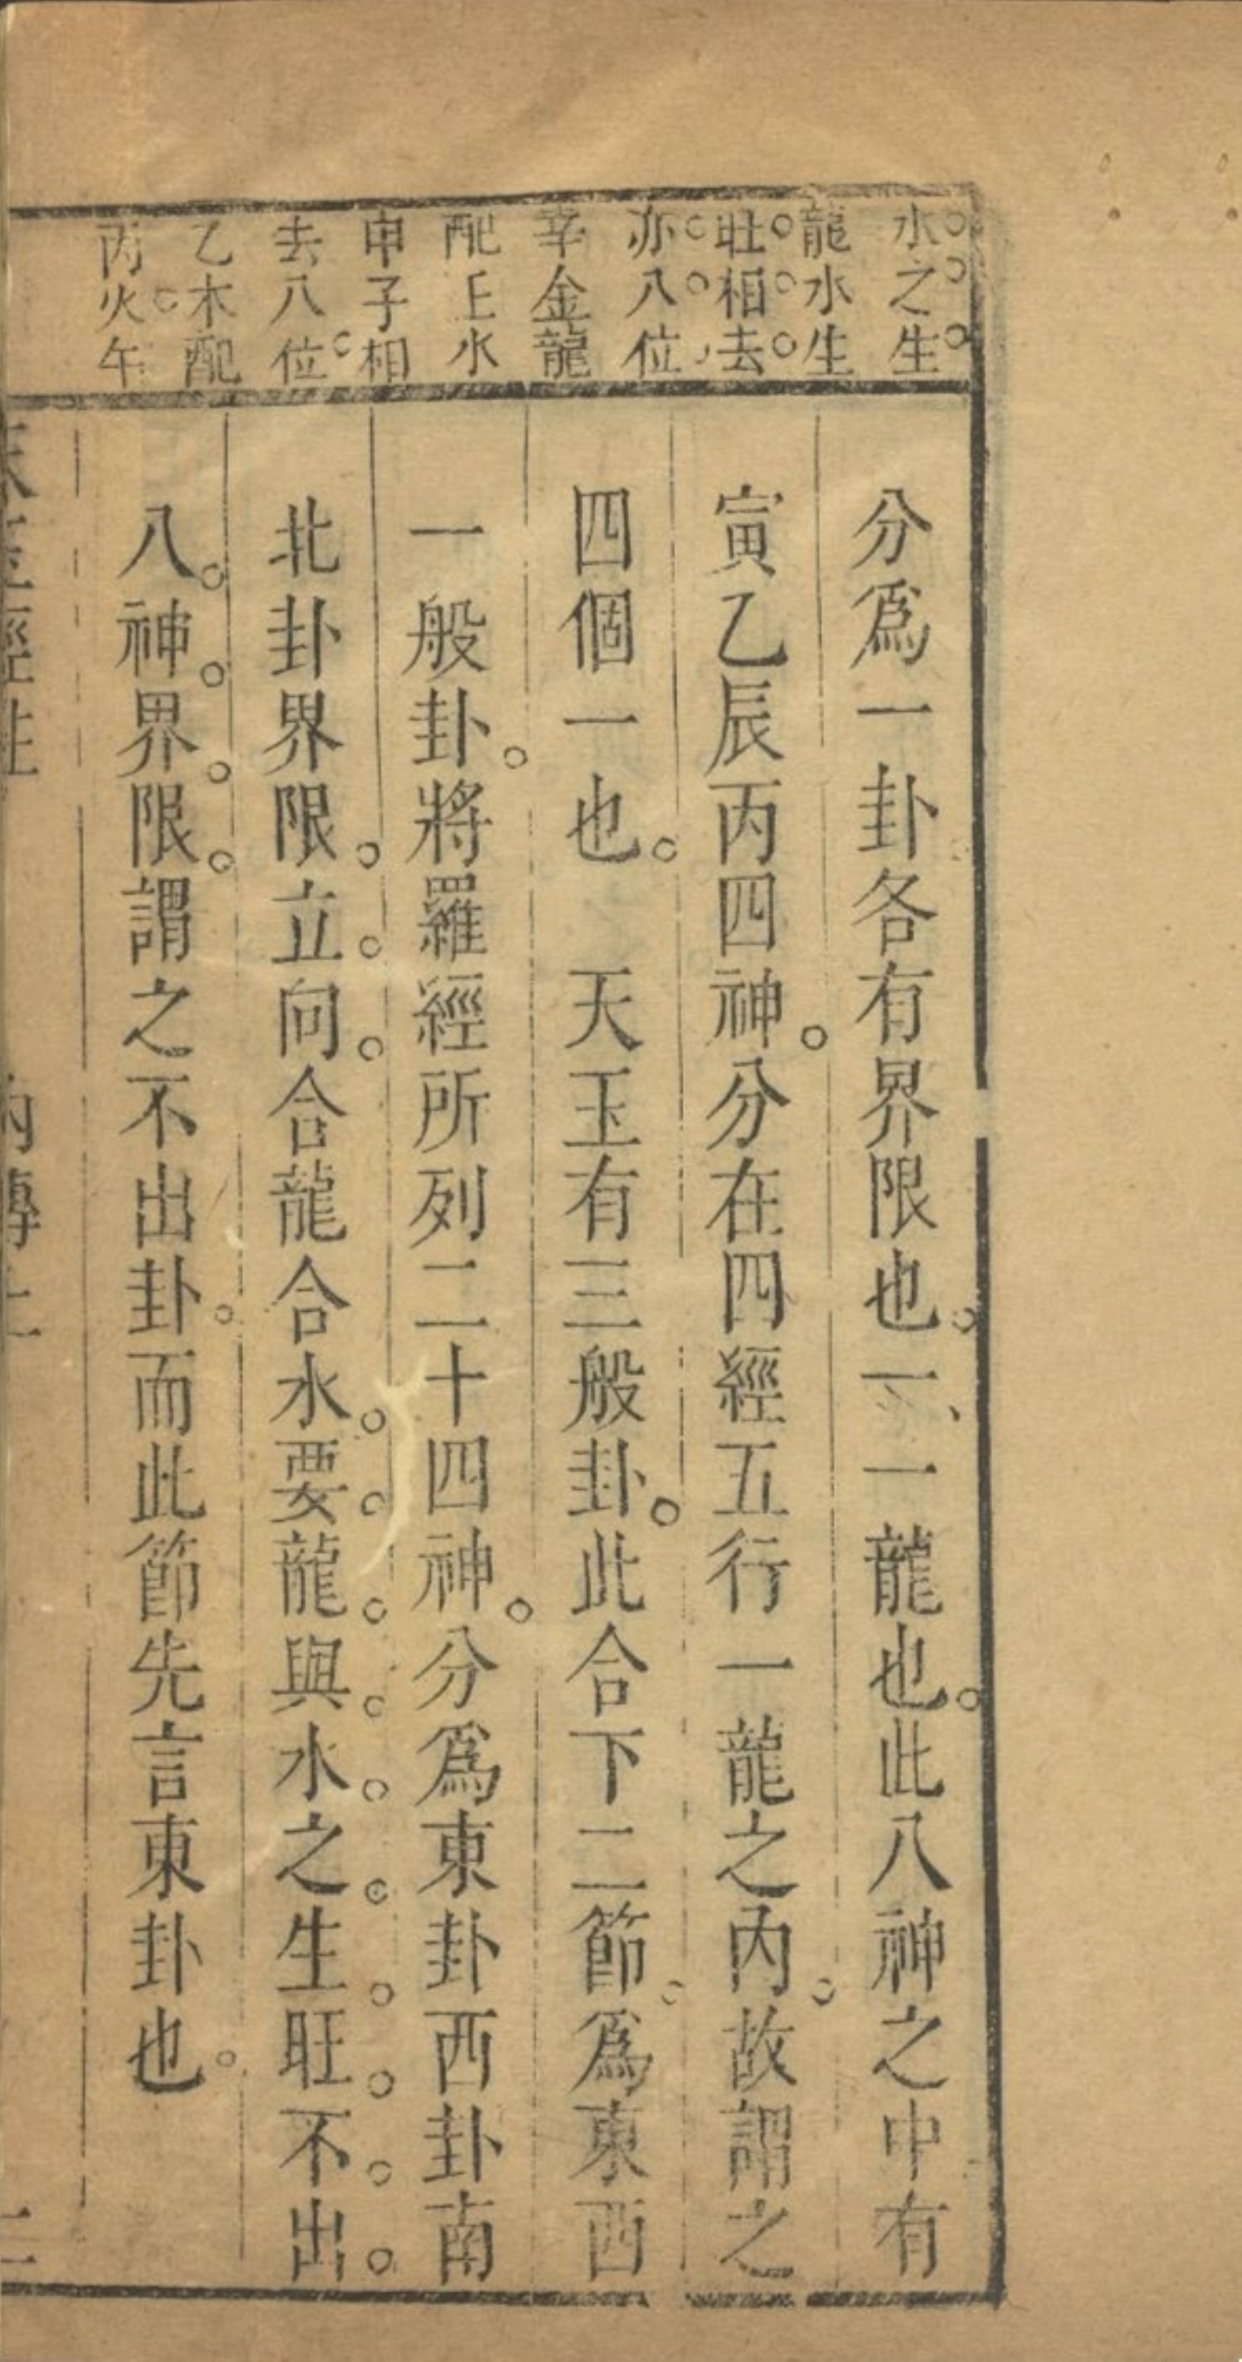 水之生
龍水生
旺相去
亦八位
辛金龍
配壬水
申子相
去八位
乙木配
丙火午
分爲一卦各有界限也。一、一龍也。此八神之中有
寅乙辰丙四神。分在四經五行一龍之內。故謂之
四個一也。　天玉有三般卦。此合下二節。爲東西
一般卦。將羅經所列二十四神。分爲東卦西卦南
北卦界限。立向合龍合水。要龍與水之生旺。不出
八神界限。謂之不出卦。而此節先言東卦也。
玉經註
內傳上
二